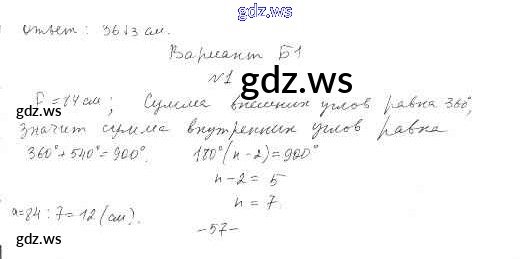 gdz.ws
ответ: 36√3 см.
Вариант Б1
№1
gdz.ws
P = 84 см; Сумма внешних углов равна 360°,
gdz.ws
значит сумма внутренних углов равна
360° + 540° = 900°. 180°(n - 2) = 900°
n - 2 = 5
n = 7.
a = 84 : 7 = 12 (см).
gdz.ws
gdz.ws
- 57 -